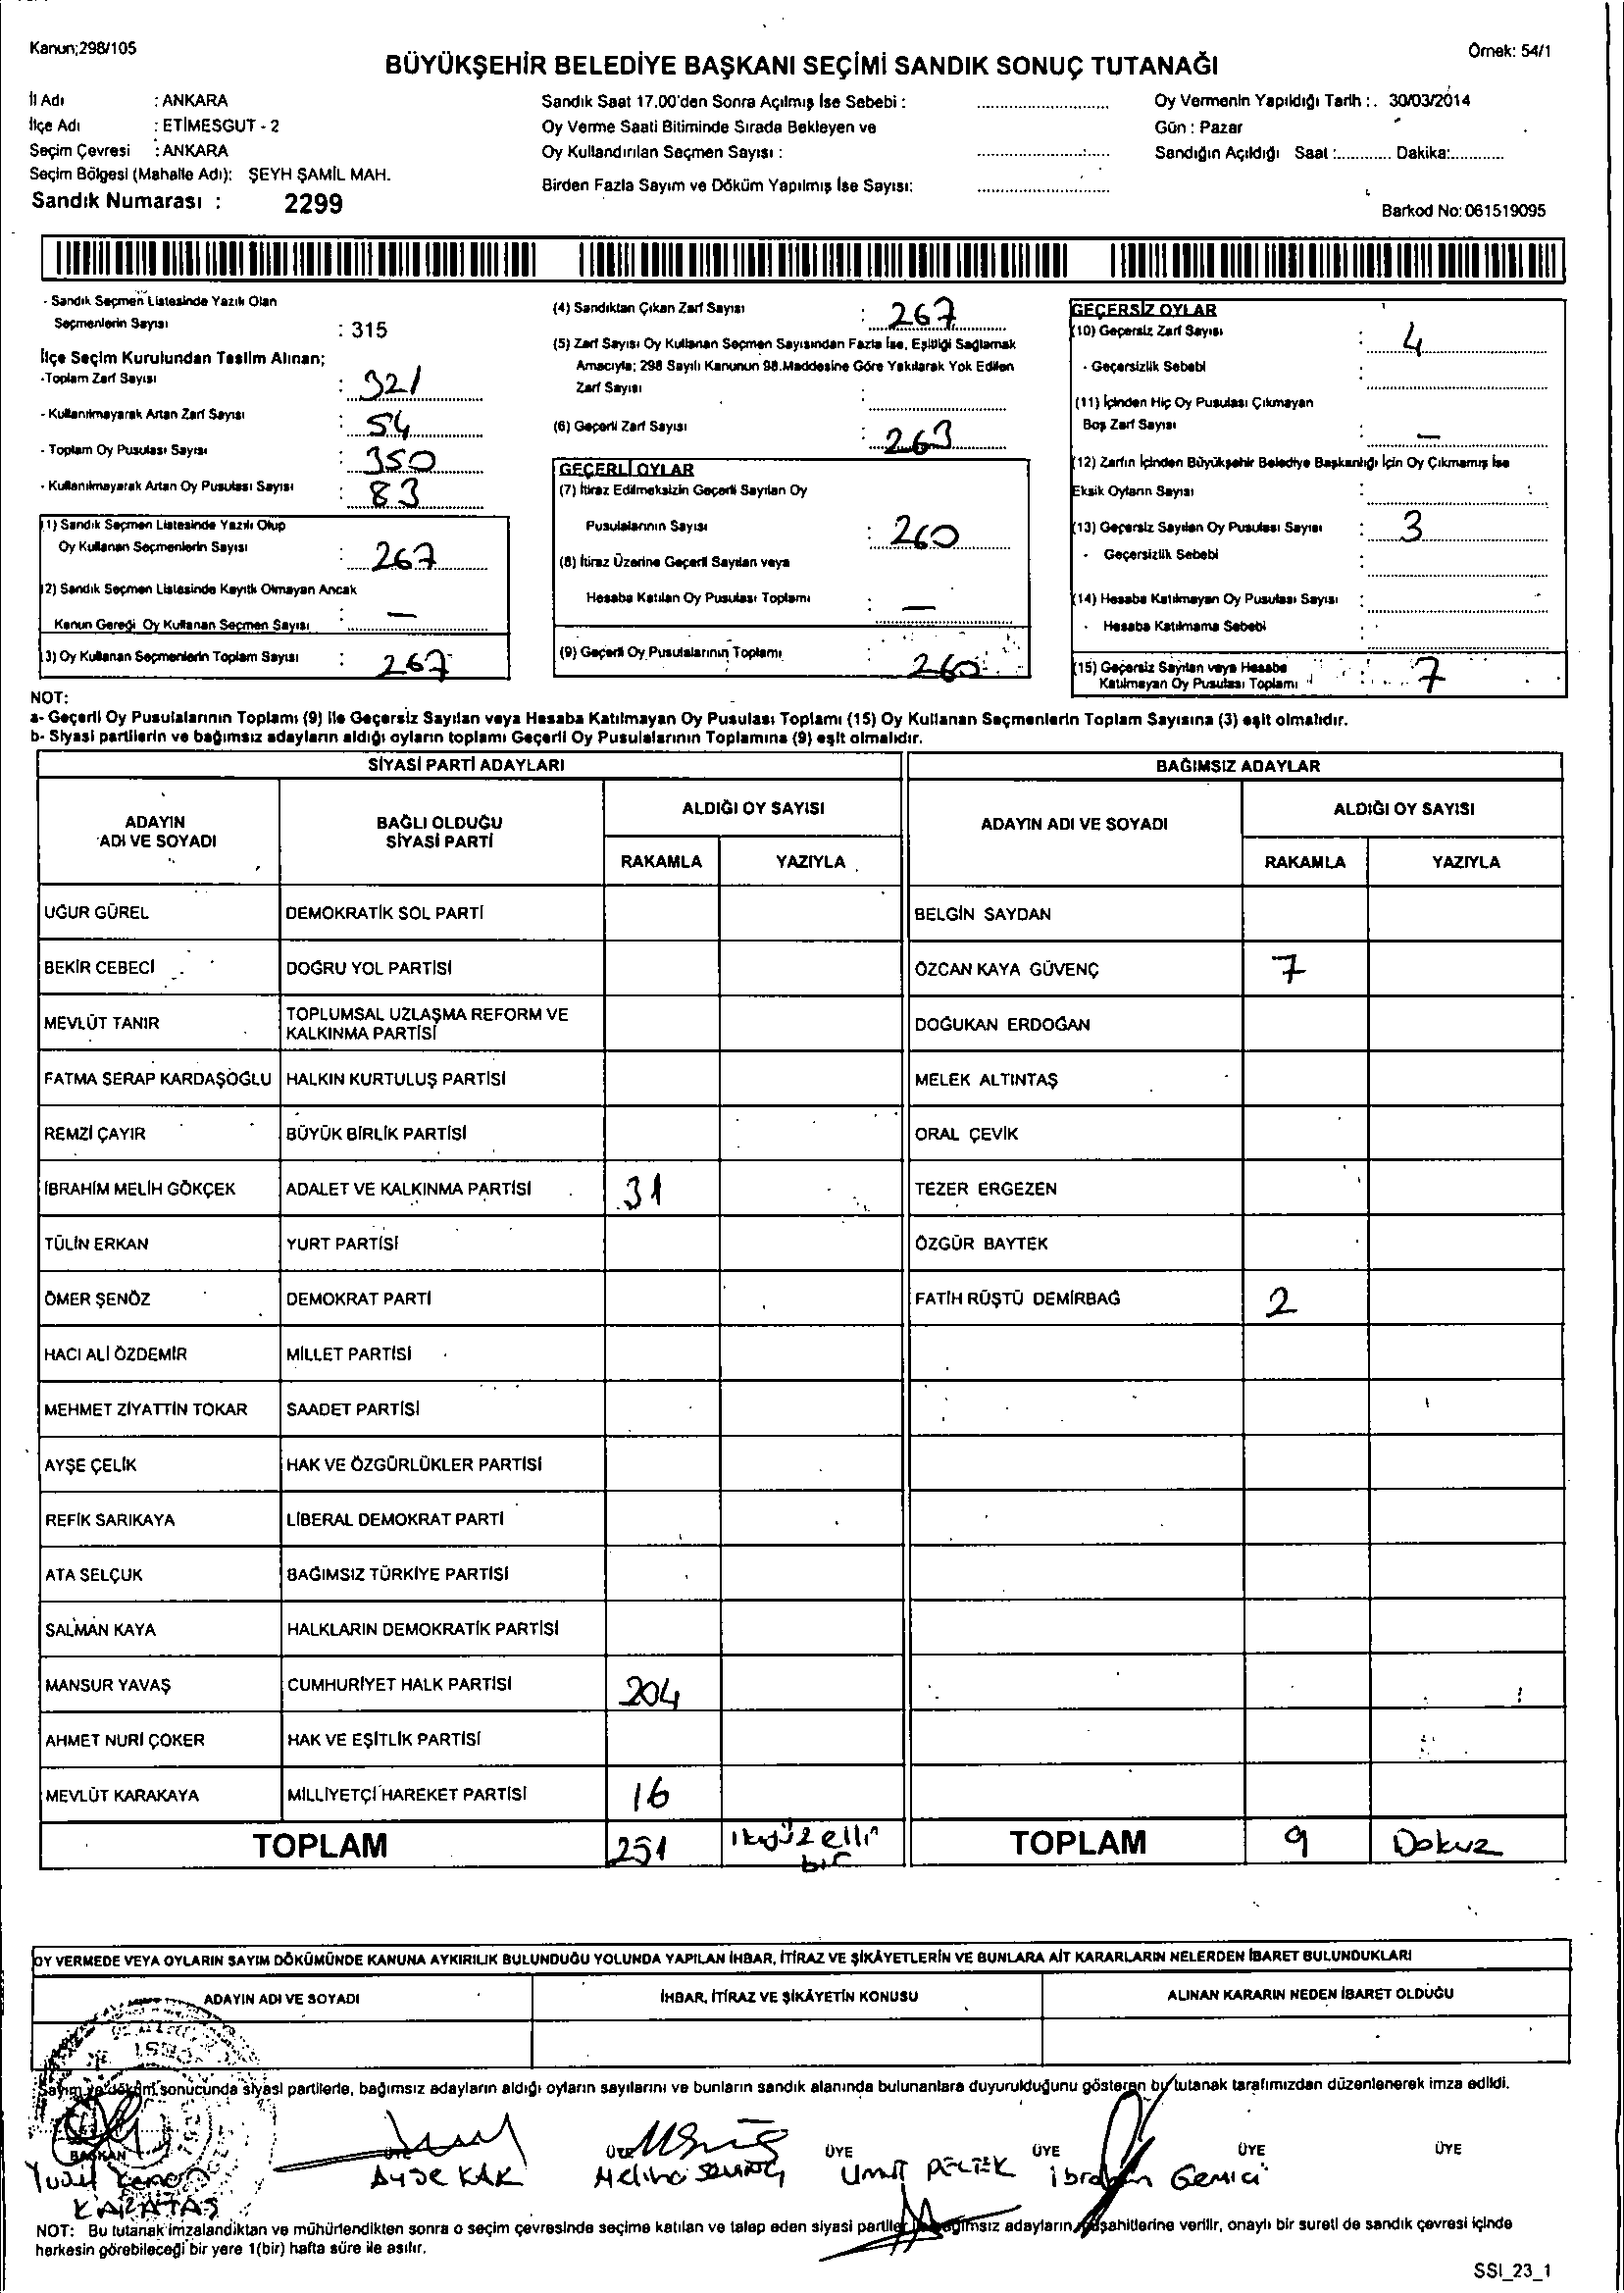 Kanun;298/105
Örnek: 54/1
BÜYÜKŞEHİR BELEDİYE BAŞKANI SEÇİMİ SANDIK SONUÇ TUTANAĞI
İl Adı : ANKARA
İlçe Adı : ETİMESGUT - 2
Seçim Çevresi : ANKARA
Seçim Bölgesi (Mahalle Adı): ŞEYH ŞAMİL MAH.
Sandık Numarası : 2299
Sandık Saat 17.00'den Sonra Açılmış İse Sebebi :
Oy Verme Saati Bitiminde Sırada Bekleyen ve
Oy Kullandırılan Seçmen Sayısı :
Birden Fazla Sayım ve Döküm Yapılmış İse Sayısı:
Oy Vermenin Yapıldığı Tarih : 30/03/2014
Gün : Pazar
Sandığın Açıldığı Saat :............ Dakika:............
Barkod No: 061519095
- Sandık Seçmen Listesinde Yazılı Olan
Seçmenlerin Sayısı : 315
İlçe Seçim Kurulundan Teslim Alınan;
-Toplam Zarf Sayısı : 321
- Kullanılmayarak Artan Zarf Sayısı : 54
- Toplam Oy Pusulası Sayısı : 350
- Kullanılmayarak Artan Oy Pusulası Sayısı : 83
(1) Sandık Seçmen Listesinde Yazılı Olup
Oy Kullanan Seçmenlerin Sayısı : 267
(2) Sandık Seçmen Listesinde Kayıtlı Olmayan Ancak
Kanun Gereği Oy Kullanan Seçmen Sayısı : —
(3) Oy Kullanan Seçmenlerin Toplam Sayısı : 267
(4) Sandıktan Çıkan Zarf Sayısı : 267
(5) Zarf Sayısı Oy Kullanan Seçmen Sayısından Fazla İse, Eşitliği Sağlamak
Amacıyla; 298 Sayılı Kanunun 98.Maddesine Göre Yakılarak Yok Edilen
Zarf Sayısı :
(6) Geçerli Zarf Sayısı : 263
GEÇERLİ OYLAR
(7) İtiraz Edilmeksizin Geçerli Sayılan Oy
Pusulalarının Sayısı : 260
(8) İtiraz Üzerine Geçerli Sayılan veya
Hesaba Katılan Oy Pusulası Toplamı : —
(9) Geçerli Oy Pusulalarının Toplamı : 260
GEÇERSİZ OYLAR
(10) Geçersiz Zarf Sayısı : 4
- Geçersizlik Sebebi :
(11) İçinden Hiç Oy Pusulası Çıkmayan
Boş Zarf Sayısı : —
(12) Zarfın İçinden Büyükşehir Belediye Başkanlığı İçin Oy Çıkmamış İse
Eksik Oyların Sayısı :
(13) Geçersiz Sayılan Oy Pusulası Sayısı : 3
- Geçersizlik Sebebi :
(14) Hesaba Katılmayan Oy Pusulası Sayısı :
- Hesaba Katılmama Sebebi :
(15) Geçersiz Sayılan veya Hesaba
Katılmayan Oy Pusulası Toplamı : 7
NOT:
a- Geçerli Oy Pusulalarının Toplamı (9) ile Geçersiz Sayılan veya Hesaba Katılmayan Oy Pusulası Toplamı (15) Oy Kullanan Seçmenlerin Toplam Sayısına (3) eşit olmalıdır.
b- Siyasi partilerin ve bağımsız adayların aldığı oyların toplamı Geçerli Oy Pusulalarının Toplamına (9) eşit olmalıdır.
SİYASİ PARTİ ADAYLARI BAĞIMSIZ ADAYLAR
ADAYIN ADI VE SOYADI BAĞLI OLDUĞU SİYASİ PARTİ ALDIĞI OY SAYISI ADAYIN ADI VE SOYADI ALDIĞI OY SAYISI
RAKAMLA YAZIYLA RAKAMLA YAZIYLA
UĞUR GÜREL DEMOKRATİK SOL PARTİ BELGİN SAYDAN
BEKİR CEBECİ DOĞRU YOL PARTİSİ ÖZCAN KAYA GÜVENÇ 7
MEVLÜT TANIR TOPLUMSAL UZLAŞMA REFORM VE KALKINMA PARTİSİ DOĞUKAN ERDOĞAN
FATMA SERAP KARDAŞOĞLU HALKIN KURTULUŞ PARTİSİ MELEK ALTINTAŞ
REMZİ ÇAYIR BÜYÜK BİRLİK PARTİSİ ORAL ÇEVİK
İBRAHİM MELİH GÖKÇEK ADALET VE KALKINMA PARTİSİ 31 TEZER ERGEZEN
TÜLİN ERKAN YURT PARTİSİ ÖZGÜR BAYTEK
ÖMER ŞENÖZ DEMOKRAT PARTİ FATİH RÜŞTÜ DEMİRBAĞ 2
HACI ALİ ÖZDEMİR MİLLET PARTİSİ
MEHMET ZİYATTİN TOKAR SAADET PARTİSİ
AYŞE ÇELİK HAK VE ÖZGÜRLÜKLER PARTİSİ
REFİK SARIKAYA LİBERAL DEMOKRAT PARTİ
ATA SELÇUK BAĞIMSIZ TÜRKİYE PARTİSİ
SALMAN KAYA HALKLARIN DEMOKRATİK PARTİSİ
MANSUR YAVAŞ CUMHURİYET HALK PARTİSİ 204
AHMET NURİ ÇOKER HAK VE EŞİTLİK PARTİSİ
MEVLÜT KARAKAYA MİLLİYETÇİ HAREKET PARTİSİ 16
TOPLAM 251 ikiyüz elli bir TOPLAM 9 Dokuz
OY VERMEDE VEYA OYLARIN SAYIM DÖKÜMÜNDE KANUNA AYKIRILIK BULUNDUĞU YOLUNDA YAPILAN İHBAR, İTİRAZ VE ŞİKÂYETLERİN VE BUNLARA AİT KARARLARIN NELERDEN İBARET BULUNDUKLARI
ADAYIN ADI VE SOYADI İHBAR, İTİRAZ VE ŞİKÂYETİN KONUSU ALINAN KARARIN NEDEN İBARET OLDUĞU
Sayım ve döküm sonucunda siyasi partilerle, bağımsız adayların aldığı oyların sayılarını ve bunların sandık alanında bulunanlara duyurulduğunu gösteren bu tutanak tarafımızdan düzenlenerek imza edildi.
BAŞKAN ÜYE ÜYE ÜYE ÜYE ÜYE ÜYE
Yusuf Kenan Ayşe KAK Meliha Ümit PELTEK ibrahim Gemici
KARATAŞ
NOT: Bu tutanak imzalandıktan ve mühürlendikten sonra o seçim çevresinde seçime katılan ve talep eden siyasi partiler bağımsız adayların müşahitlerine verilir, onaylı bir sureti de sandık çevresi içinde
herkesin görebileceği bir yere 1(bir) hafta süre ile asılır.
SSI_23_1